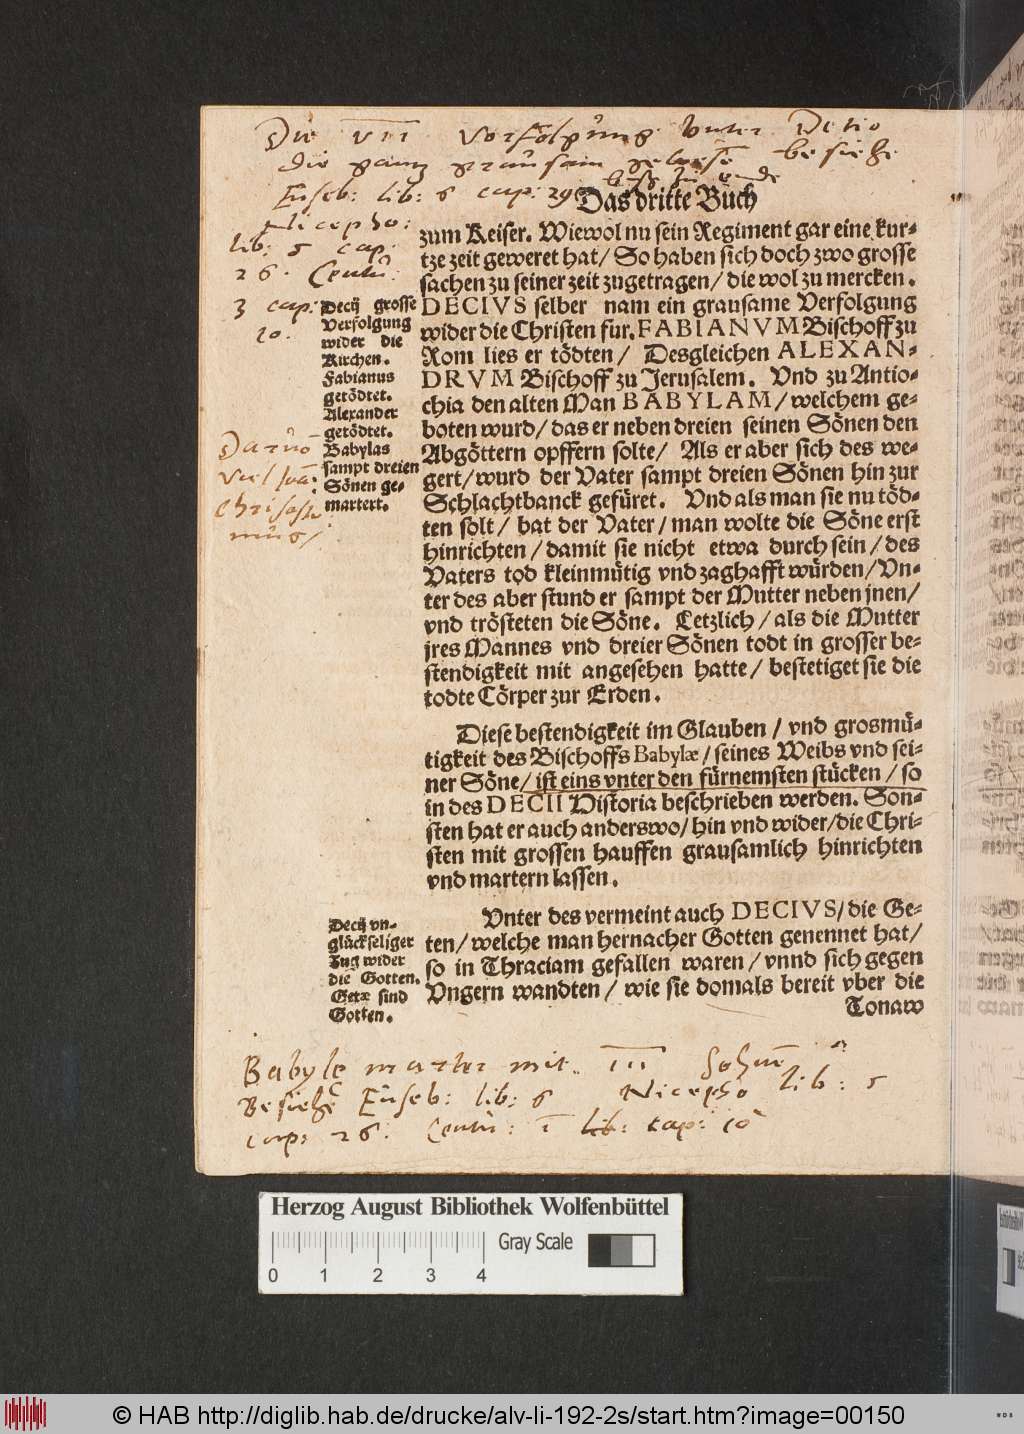 Die VII Vorfolgung vnter Detio
die gantz grausam gewesē besiehe
Euseb: lib: 6 cap: 29 biss zu ende
Nicepho:
lib: 5 cap:
26. Centū:
3 cap:
10.
Das dritte Buch
zum Keiser. Wiewol nu sein Regiment gar eine kur-
tze zeit geweret hat/ So haben sich doch zwo grosse
sachen zu seiner zeit zugetragen/ die wol zu mercken.
DECIVS selber nam ein grausame Verfolgung
wider die Christen fur. FABIANVM Bischoff zu
Rom lies er tödten/ Desgleichen ALEXAN-
DRVM Bischoff zu Jerusalem. Vnd zu Antio-
chia den alten Man BABYLAM/ welchem ge-
boten wurd/ das er neben dreien seinen Sönen den
Abgöttern opffern solte/ Als er aber sich des we-
gert/ wurd der Vater sampt dreien Sönen hin zur
Schlachtbanck gefüret. Vnd als man sie nu töd-
ten solt/ bat der Vater/ man wolte die Söne erst
hinrichten/ damit sie nicht etwa durch sein/ des
Vaters tod kleinmütig vnd zaghafft würden/ Vn-
ter des aber stund er sampt der Mutter neben jnen/
vnd trösteten die Söne. Letzlich/ als die Mutter
jres Mannes vnd dreier Sönen todt in grosser be-
stendigkeit mit angesehen hatte/ bestetiget sie die
todte Cörper zur Erden.
Decij grosse
Verfolgung
wider die
Kirchen.
Fabianus
getödtet.
Alexander
getödtet.
Babylas
sampt dreien
Sönen ge-
martert.
Diese bestendigkeit im Glauben/ vnd grosmü-
tigkeit des Bischoffs Babylæ/ seines Weibs vnd sei-
ner Söne/ ist eins vnter den fürnemsten stücken/ so
in des DECII Historia beschrieben werden. Son-
sten hat er auch anderswo/ hin vnd wider/ die Chri-
sten mit grossen hauffen grausamlich hinrichten
vnd martern lassen.
Vnter des vermeint auch DECIVS/ die Ge-
ten/ welche man hernacher Gotten genennet hat/
so in Thraciam gefallen waren/ vnnd sich gegen
Vngern wandten/ wie sie domals bereit vber die
Tonaw
Decij vn-
glückseliger
Zug wider
die Gotten.
Getæ sind
Gotten.
Babyle marter mit III
Besiehe Euseb: lib: 6 Nicepho lib: 5
cap: 26. Centū: lib: cap: 10
Herzog August Bibliothek Wolfenbüttel
Gray Scale
0 1 2 3 4
© HAB http://diglib.hab.de/drucke/alv-li-192-2s/start.htm?image=00150